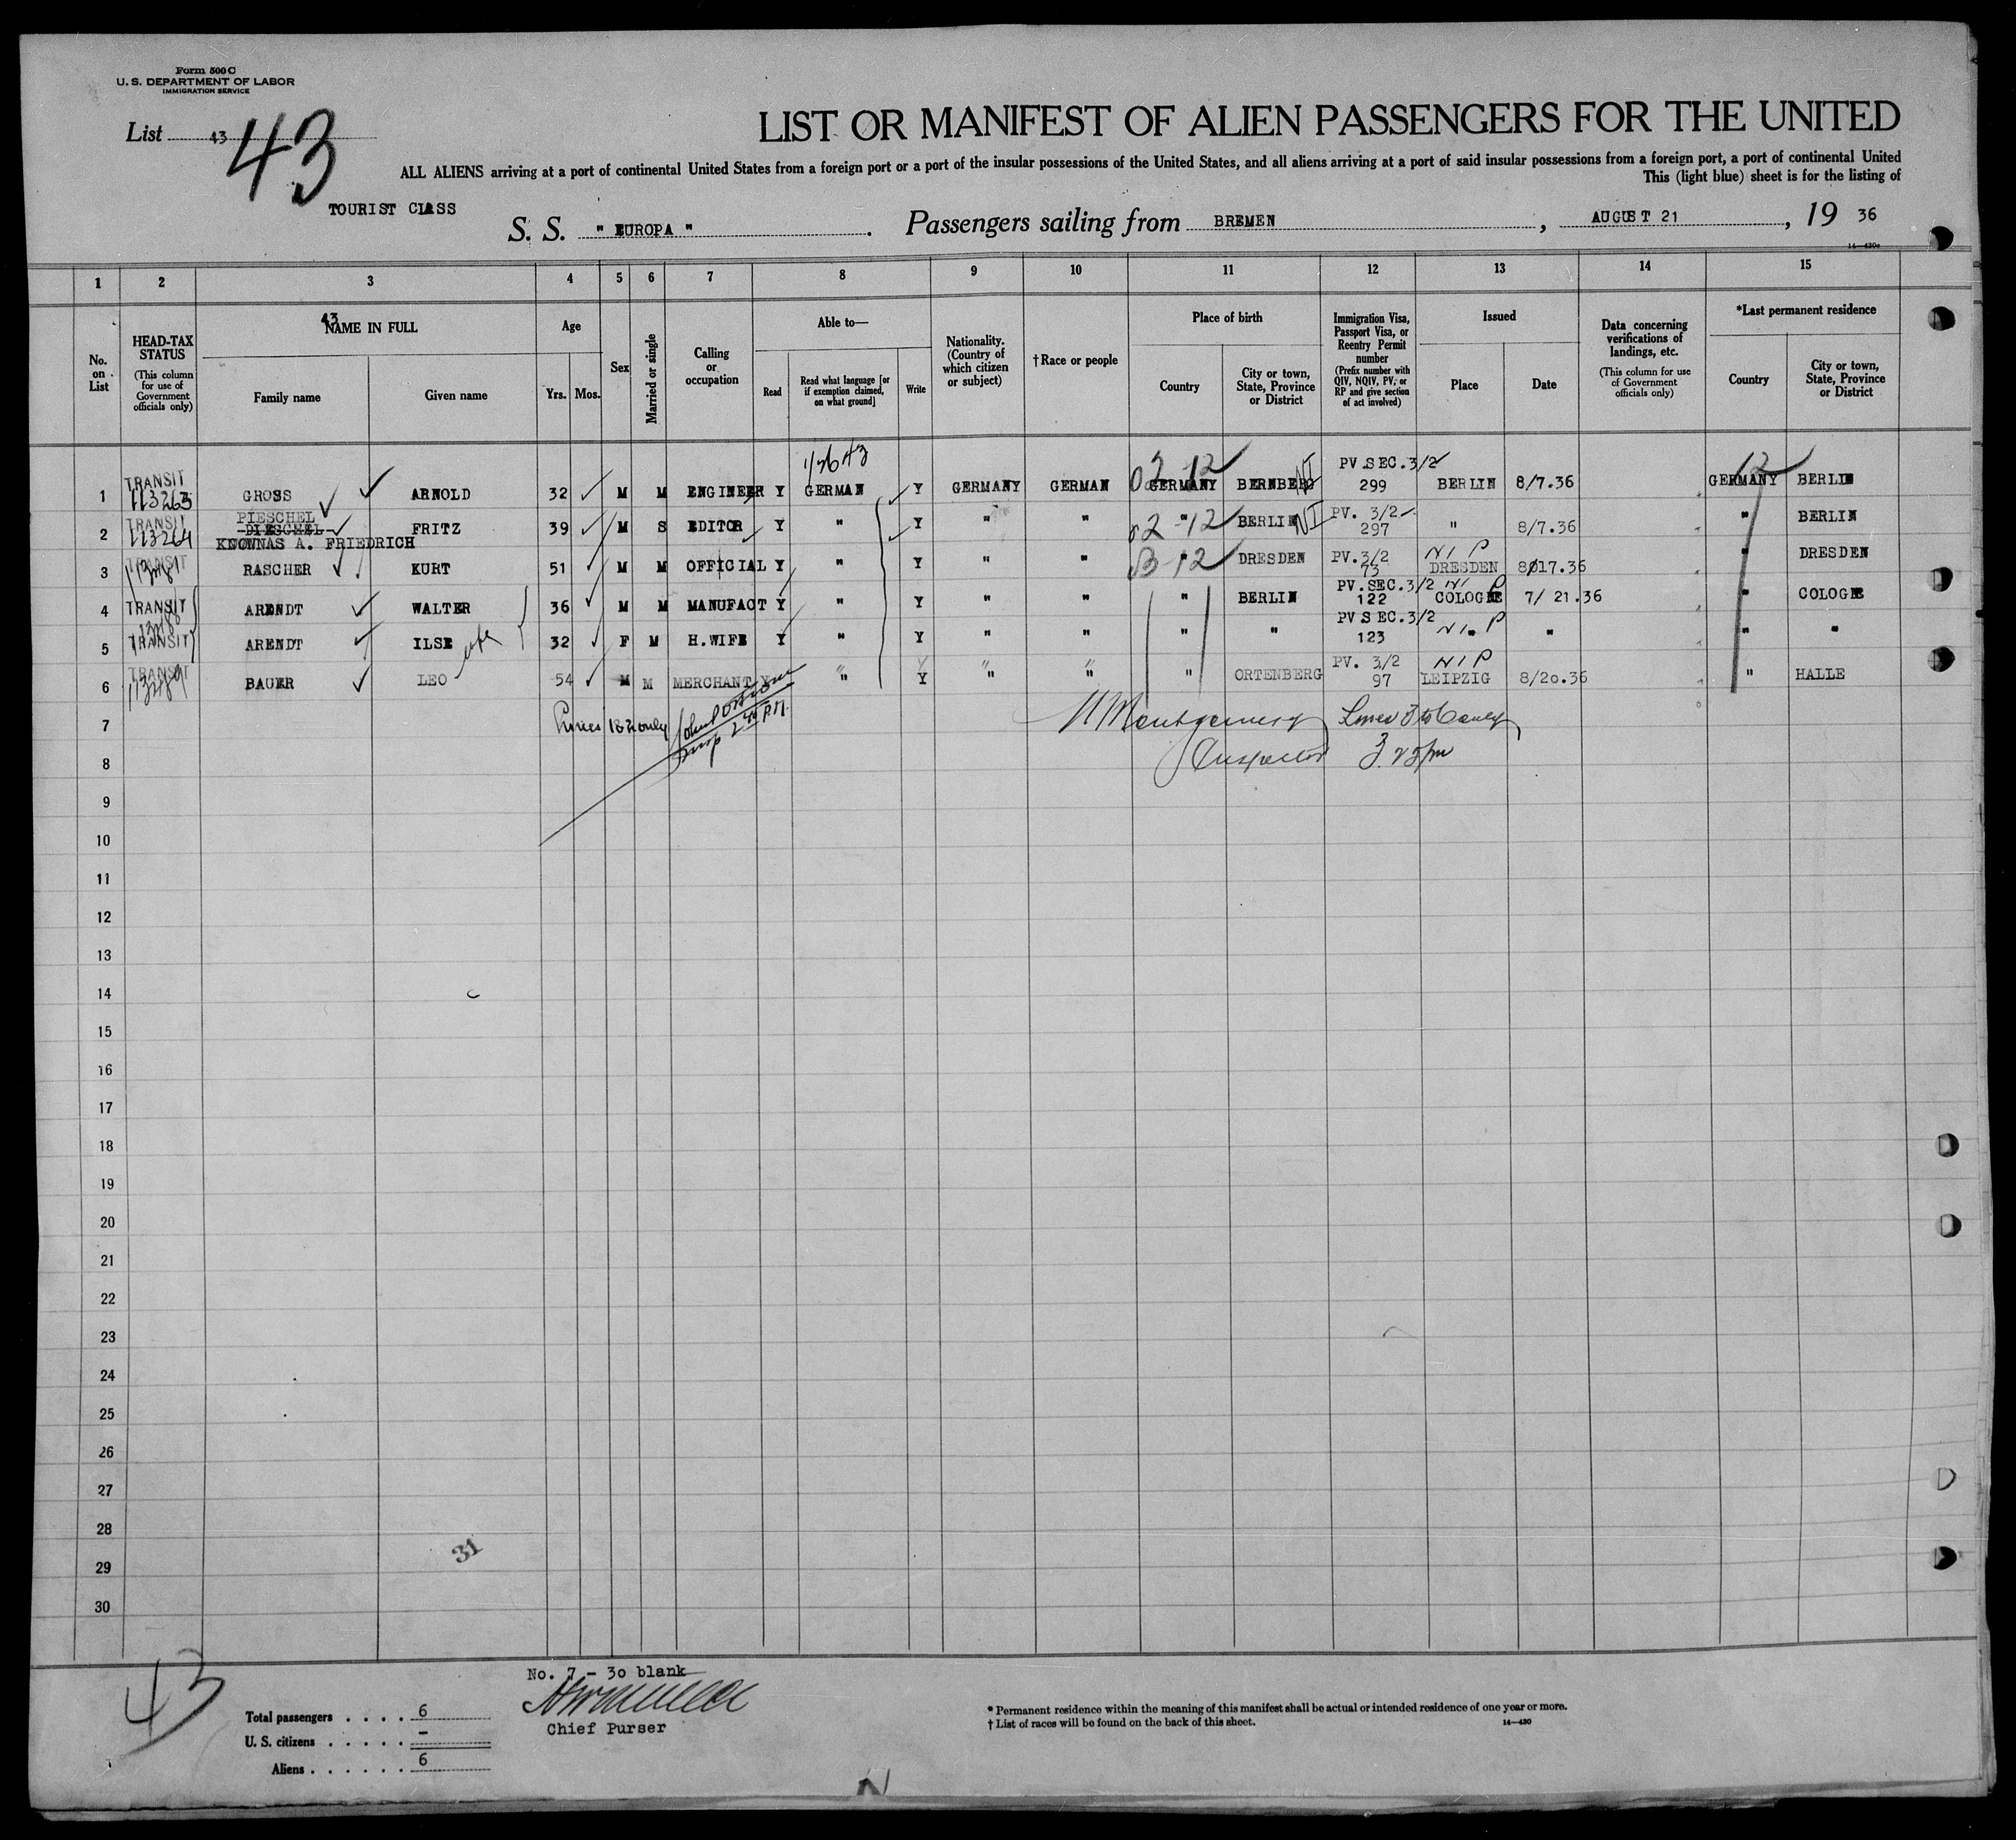 Form 500 C
U. S. DEPARTMENT OF LABOR
IMMIGRATION SERVICE
List 43
43
LIST OR MANIFEST OF ALIEN PASSENGERS FOR THE UNITED
ALL ALIENS arriving at a port of continental United States from a foreign port or a port of the insular possessions of the United States, and all aliens arriving at a port of said insular possessions from a foreign port, a port of continental United
This (light blue) sheet is for the listing of
TOURIST CLASS
S. S. " EUROPA " . Passengers sailing from BREMEN , AUGUST 21 , 19 36
14—430c
1 2 3 4 5 6 7 8 9 10 11 12 13 14 15
No. on List
HEAD-TAX STATUS (This column for use of Government officials only)
43
NAME IN FULL Family name Given name
Age Yrs. Mos.
Sex
Married or single
Calling or occupation
Able to— Read Read what language [or if exemption claimed, on what ground] Write
Nationality. (Country of which citizen or subject)
† Race or people
Place of birth Country City or town, State, Province or District
Immigration Visa, Passport Visa, or Reentry Permit number (Prefix number with QIV, NQIV, PV, or RP and give section of act involved)
Issued Place Date
Data concerning verifications of landings, etc. (This column for use of Government officials only)
*Last permanent residence Country City or town, State, Province or District
1 TRANSIT 113263 GROSS ARNOLD 32 M M ENGINEER Y GERMAN Y GERMANY GERMAN 02-12 GERMANY BERNBERG NI PV.SEC.3/2 299 BERLIN 8/7.36 12 GERMANY BERLIN
2 TRANSIT 113264 PIESCHEL DIESCHEL KNOWNAS A. FRIEDRICH FRITZ 39 M S EDITOR Y " Y " " 02-12 " BERLIN NI PV. 3/2 297 " 8/7.36 " BERLIN
3 TRANSIT RASCHER KURT 51 M M OFFICIAL Y " Y " " 12 " DRESDEN PV.3/2 73 NIP DRESDEN 8/17.36 " DRESDEN
4 TRANSIT ARENDT WALTER 36 M M MANUFACT Y " Y " " " BERLIN PV.SEC.3/2 122 NIP COLOGNE 7/ 21.36 " COLOGNE
5 TRANSIT ARENDT ILSE wife 32 F M H.WIFE Y " Y " " " " PV SEC.3/2 123 NIP " " " "
6 TRANSIT BAUER LEO 54 M M MERCHANT Y " Y " " " ORTENBERG PV. 3/2 97 NIP LEIPZIG 8/20.36 " HALLE
7 Lines 1&2 only Montgomery Lines 3 to 6 only
8 Insp Inspector 3.25pm
9
10
11
12
13
14
15
16
17
18
19
20
21
22
23
24
25
26
27
28
29
30
31
43
No. 7 - 30 blank
Chief Purser
Total passengers . . . . 6
U. S. citizens . . . . . -
Aliens . . . . . . 6
* Permanent residence within the meaning of this manifest shall be actual or intended residence of one year or more.
† List of races will be found on the back of this sheet.
14—430